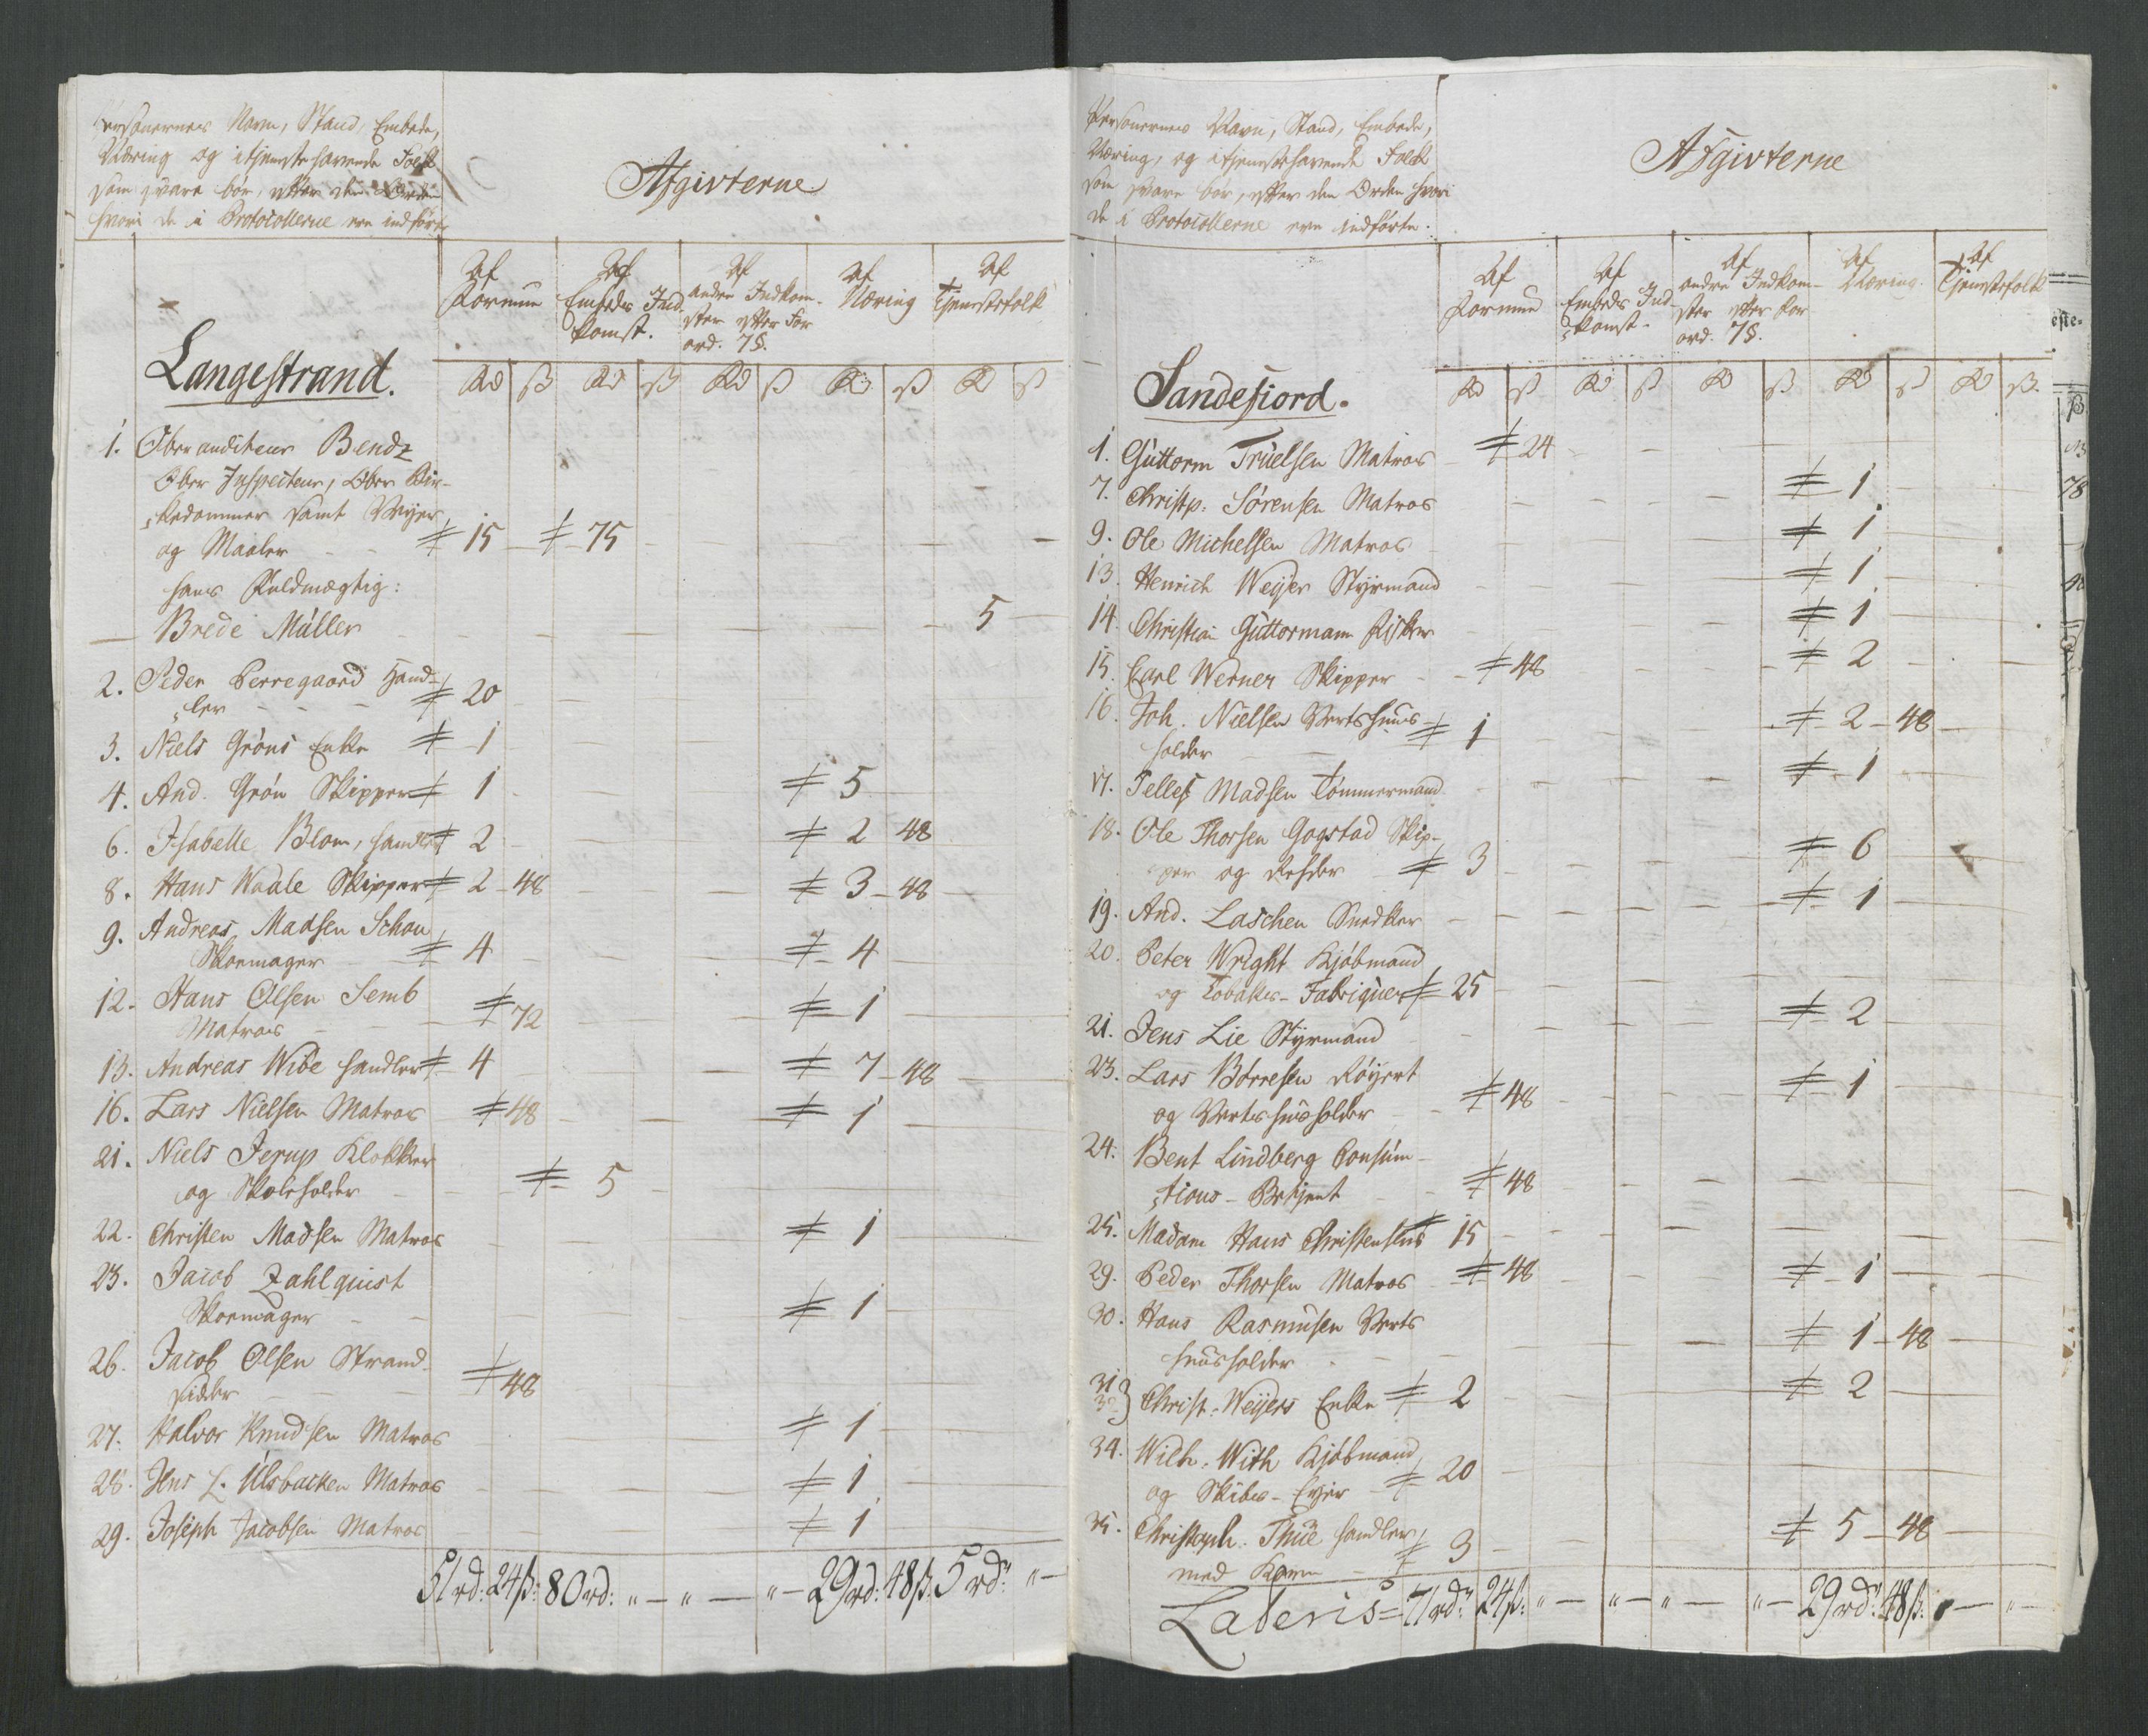 Personernes Navn, Stand, Embede,
Næring og itjenestehavende Folk
som svare bør, efter den Orden
hvori de i Protocollerne ere indførte
Afgivterne
Af Formue
Af Embeds Ind-komst.
Af andre Indkom-ster efter For ord. 7§.
Af Næring
Af Tjenestefolk
Langestrand.
Rd ß Rd ß Rd ß Rd ß Rd ß
1. Oberauditeur Bendz
Ober Inspecteur, Ober Bir-
kedommer samt Veyer
og Maaler 15 75
hans Fuldmægtig:
Brede Müller 5
2. Peder Berregaard Hand-
ler 20
3. Niels Gróns Enke 1
4. And. Grón Skipper 1 5
6. Isabelle Blom, handler 2 2 48
8. Hans Waale Skipper 2 48 3 48
9. Andreas Madsen Schou
Skoemager 4 4
12. Hans Olsen Semb
Matros 72 1
13. Andreas Wibe handler 4 7 48
16. Lars Nielsen Matros 48 1
21. Niels Jerup Klokker
og Skoleholder 5
22. Christen Madsen Matros 1
23. Jacob Zahlquist
Skoemager 1
26. Jacob Olsen Strand-
sidder 48
27. Halvor Knudsen Matros 1
28. Jens L. Ulsbacken Matros 1
29. Joseph Jacobsen Matros 1
51rd: 24ß: 80rd: " — " — " — 29rd: 48ß: 5rd: " —
Personernes Navn, Stand, Embede,
Næring, og itjenestehavende Folck
som svare bør, efter den Orden hvori
de i Protocollerne ere indførte.
Afgivterne
Af Formue
Af Embeds Ind-komst.
Af andre Indkom-ster efter For ord. 7§.
Af Næring.
Af Tjenestefolk
Sandefiord.
Rd ß Rd ß Rd ß Rd ß Rd ß
1. Guttorm Truelsen Matros 24
7. Christp: Sörensen Matros 1
9. Ole Michelsen Matros 1
13. Henrich Weyer Styrmand 1
14. Christian Guttormsen Fisker 1
15. Carl Werner Skipper 48 2
16. Joh. Nielsen Vertshuus-
holder 1 2 48
17. Tellef Madsen Tömmermand 1
18. Ole Thorsen Gogstad Skip-
per og Rehder 3 6
19. And. Laschen Snedker 1
20. Peter Wright Kjöbmand
og Tobaks-Fabriquer 25
21. Jens Lie Styrmand 2
23. Lars Börresen Röyert
og Vertshusholder 48 1
24. Bent Lindberg Consum-
tions-Betjent 48
25. Madam Hans Christensens 15
29. Peder Thorsen Matros 48 1
30. Hans Rasmusen Verts
huusholder 1 48
31
32 } Christ. Weyers Enke 2 2
34. Wilh. With Kjöbmand
og Skibs-Eyer 20
35. Christoph. Thue handler
med Korn 3 5 48
Lateris = 71rd: 24ß: " — " — " — " — 29rd: 48ß: " — " —